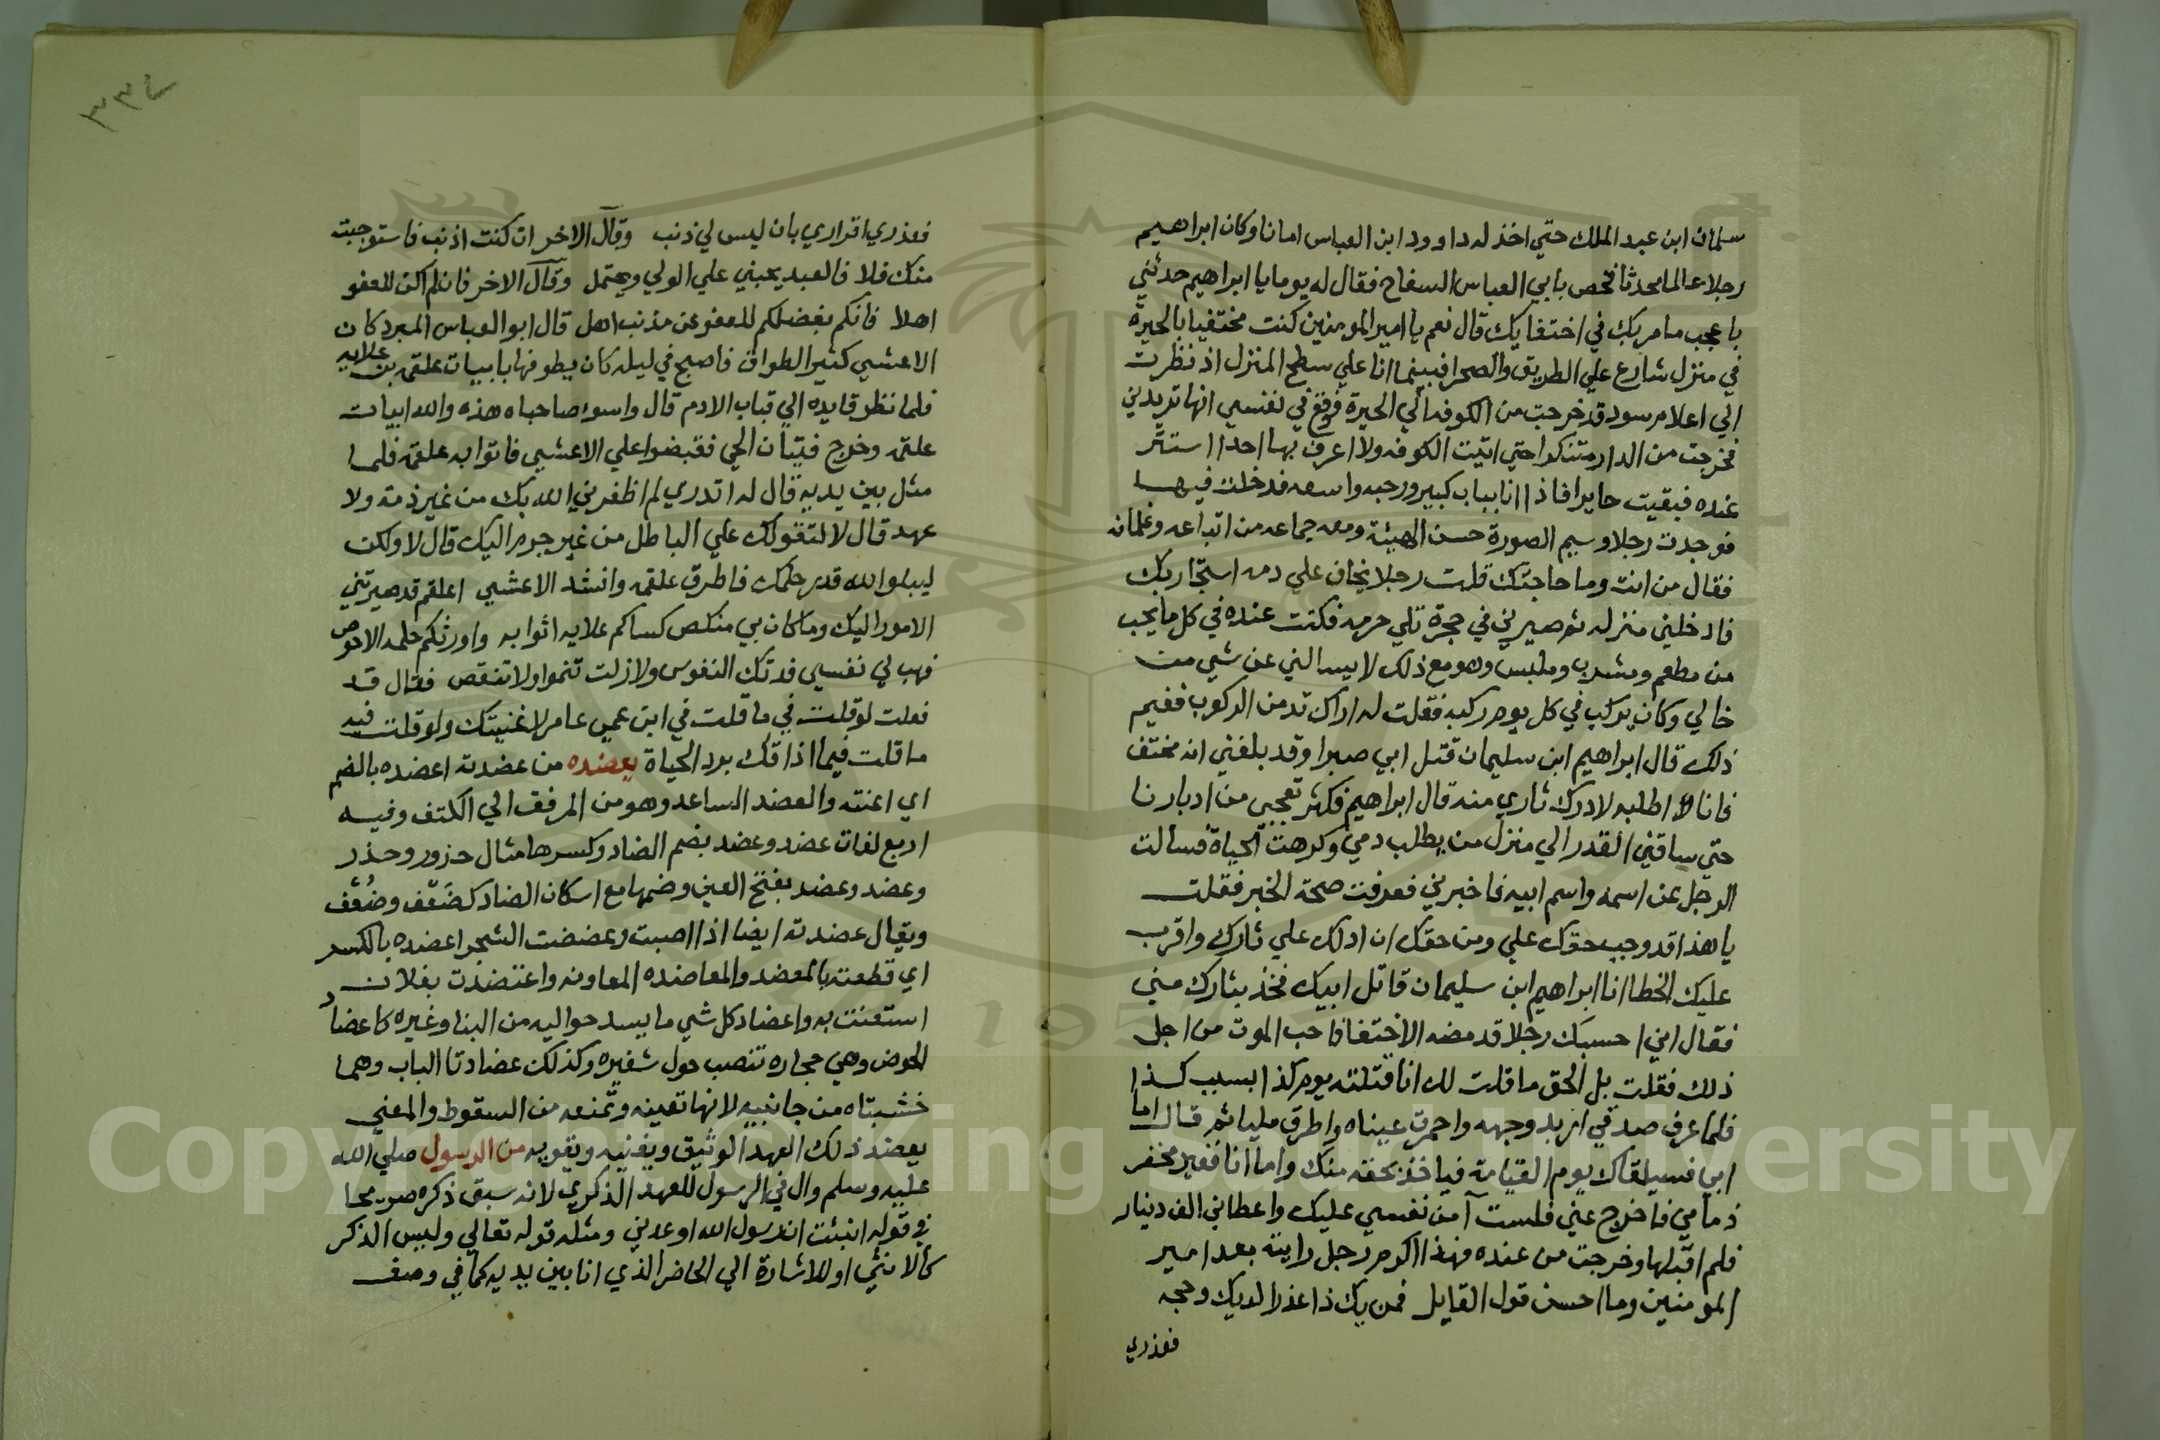 سلمان ابن عبد الملك حتي اخذ له داوود ابن العباس امانا وكان ابراهيم
رجلا عالما محدثا فخص بابي العباس السفاح فقال له يوما يا ابراهيم حدثني
باعجب ما مر بك في اختفايك قال نعم يا امير المومنين كنت مختفيا بالحيرة
في منزل شارع علي الطريق والصحرا فبينما انا علي سطح المنزل اذ نظرت
الي اعلام سود قد خرجت من الكوفه الي الحيرة فوقع في نفسي انها تريدني
فخرجت من الدار متنكرا حتي اتيت الكوفه ولا اعرف بها احدا استتر
عنده فبقيت حايرا فاذا انا بباب كبير ورحبه واسعه فدخلت فيها
فوجدت رجلا وسيم الصورة حسن الهيئة ومعه جماعه من اتباعه وغلمانه
فقال من انت وما حاجتك قلت رجلا يخاف علي دمه استجار بك
فادخلني منزله ثم صيرني في حجرة تلي حرمه فكنت عنده في كل ما يحب
من مطعم ومشرب وملبس وهو مع ذلك لا يسالني عن شي من
حالي وكان يركب في كل يوم ركبه فقلت له اراك تدمن الركوب ففيم
ذلك قال ابراهيم ابن سليمان قتل ابي صبرا وقد بلغني انه مختف
فانا اطلبه لادرك ثاري منه قال ابراهيم فكثر تعجبي من ادبارنا
حتي ساقني القدر الي منزل من يطلب دمي وكرهت الحياة فسالت
الرجل عن اسمه واسم ابيه فاخبرني فعرفت صحة الخبر فقلت
يا هذا قد وجب حقك علي ومن حقك ان ادلك علي ثارك واقرب
عليك الخطا انا ابراهيم ابن سليمان قاتل ابيك فخذ بثارك مني
فقال اني احسبك رجلا قد مضه الاختفا فاحب الموت من اجل
ذلك فقلت بل الحق ما قلت لك انا قتلته يوم كذا بسبب كذا
فلما عرف صدقي اربد وجهه واحمرت عيناه واطرق مليا ثم قال اما
ابي فسيلقاك يوم القيامة فياخذ بحقه منك واما انا فغير مخفر
ذمامي فاخرج عني فلست آمن نفسي عليك واعطاني الف دينار
فلم اقبلها وخرجت من عنده فهذا اكرم رجل رايته بعد امير
المومنين وما احسن قول القايل فمن يك ذا عذر لديك وحجه
فعذري
٣٣٤
فعذري اقراري بان ليس لي ذنب وقال الاخر ان كنت اذنب فاستوجبت
منك قلا فالعبد يجني علي الولي ويحتمل وقال الاخر فان لم اكن للعفو
اهلا فانكم بفضلكم للعفو عن مذنب اهل قال ابو العباس المبرد كان
الاعشي كثير الطواف فاصبح في ليله كان يطوفها بابيات علقمه بن علايه
فلما نظر قايده الي قباب الادم قال واسوء صباحاه هذه والله ابيات
علقمه وخرج فتيان الحي فقبضوا علي الاعشي فاتوا به علقمه فلما
مثل بين يديه قال له اتدري لم اظفرني الله بك من غير ذمة ولا
عهد قال لا لتقولك علي الباطل من غير جرم اليك قال لا ولكن
ليبلوا الله قدر حلمك فاطرق علقمه وانشد الاعشي اعلقم قد صيرتني
الامور اليك وما كان بي منكص كساكم علايه اثوابه واورثكم حلمه الاحوص
فهب لي نفسي فدتك النفوس ولا زلت تنموا ولا تنقص فقال قد
فعلت لو قلت في ما قلت في ابن عمي عامر لاغنيتك ولو قلت فيه
ما قلت فيما اذاقك برد الحياة يعضده من عضدته اعضده بالضم
اي اعنته والعضد الساعد وهو من المرفق الي الكتف وفيه
اربع لغات عضد وعضد بضم الضاد وكسرها مثال حزور وحذر
وعضد وعضد بفتح العين وضمها مع اسكان الضاد كضَعْف وضُعْف
ويقال عضدته ايضا اذا اصبت وعضضت الشجر اعضده بالكسر
اي قطعته بالمعضد والمعاضده المعاونه واعتضدت بفلان
استعنت به واعضاد كل شي ما يسد حواليه من البنا وغيره كاعضاد
الحوض وهي حجاره تنصب حول شفيره وكذلك عضادتا الباب وهما
خشبتاه من جانبيه لانها تعينه وتمنعه من السقوط والمعني
يعضد ذلك العهد الوثيق ويغنيه ويقويه من الرسول صلي الله
عليه وسلم وال في الرسول للعهد الذكري لانه سبق ذكره صريحا
في قوله انبئت ان رسول الله اوعدني ومثله قوله تعالي وليس الذكر
كالانثي او للاشارة الي الحاضر الذي انا بين يديه كما في وصف